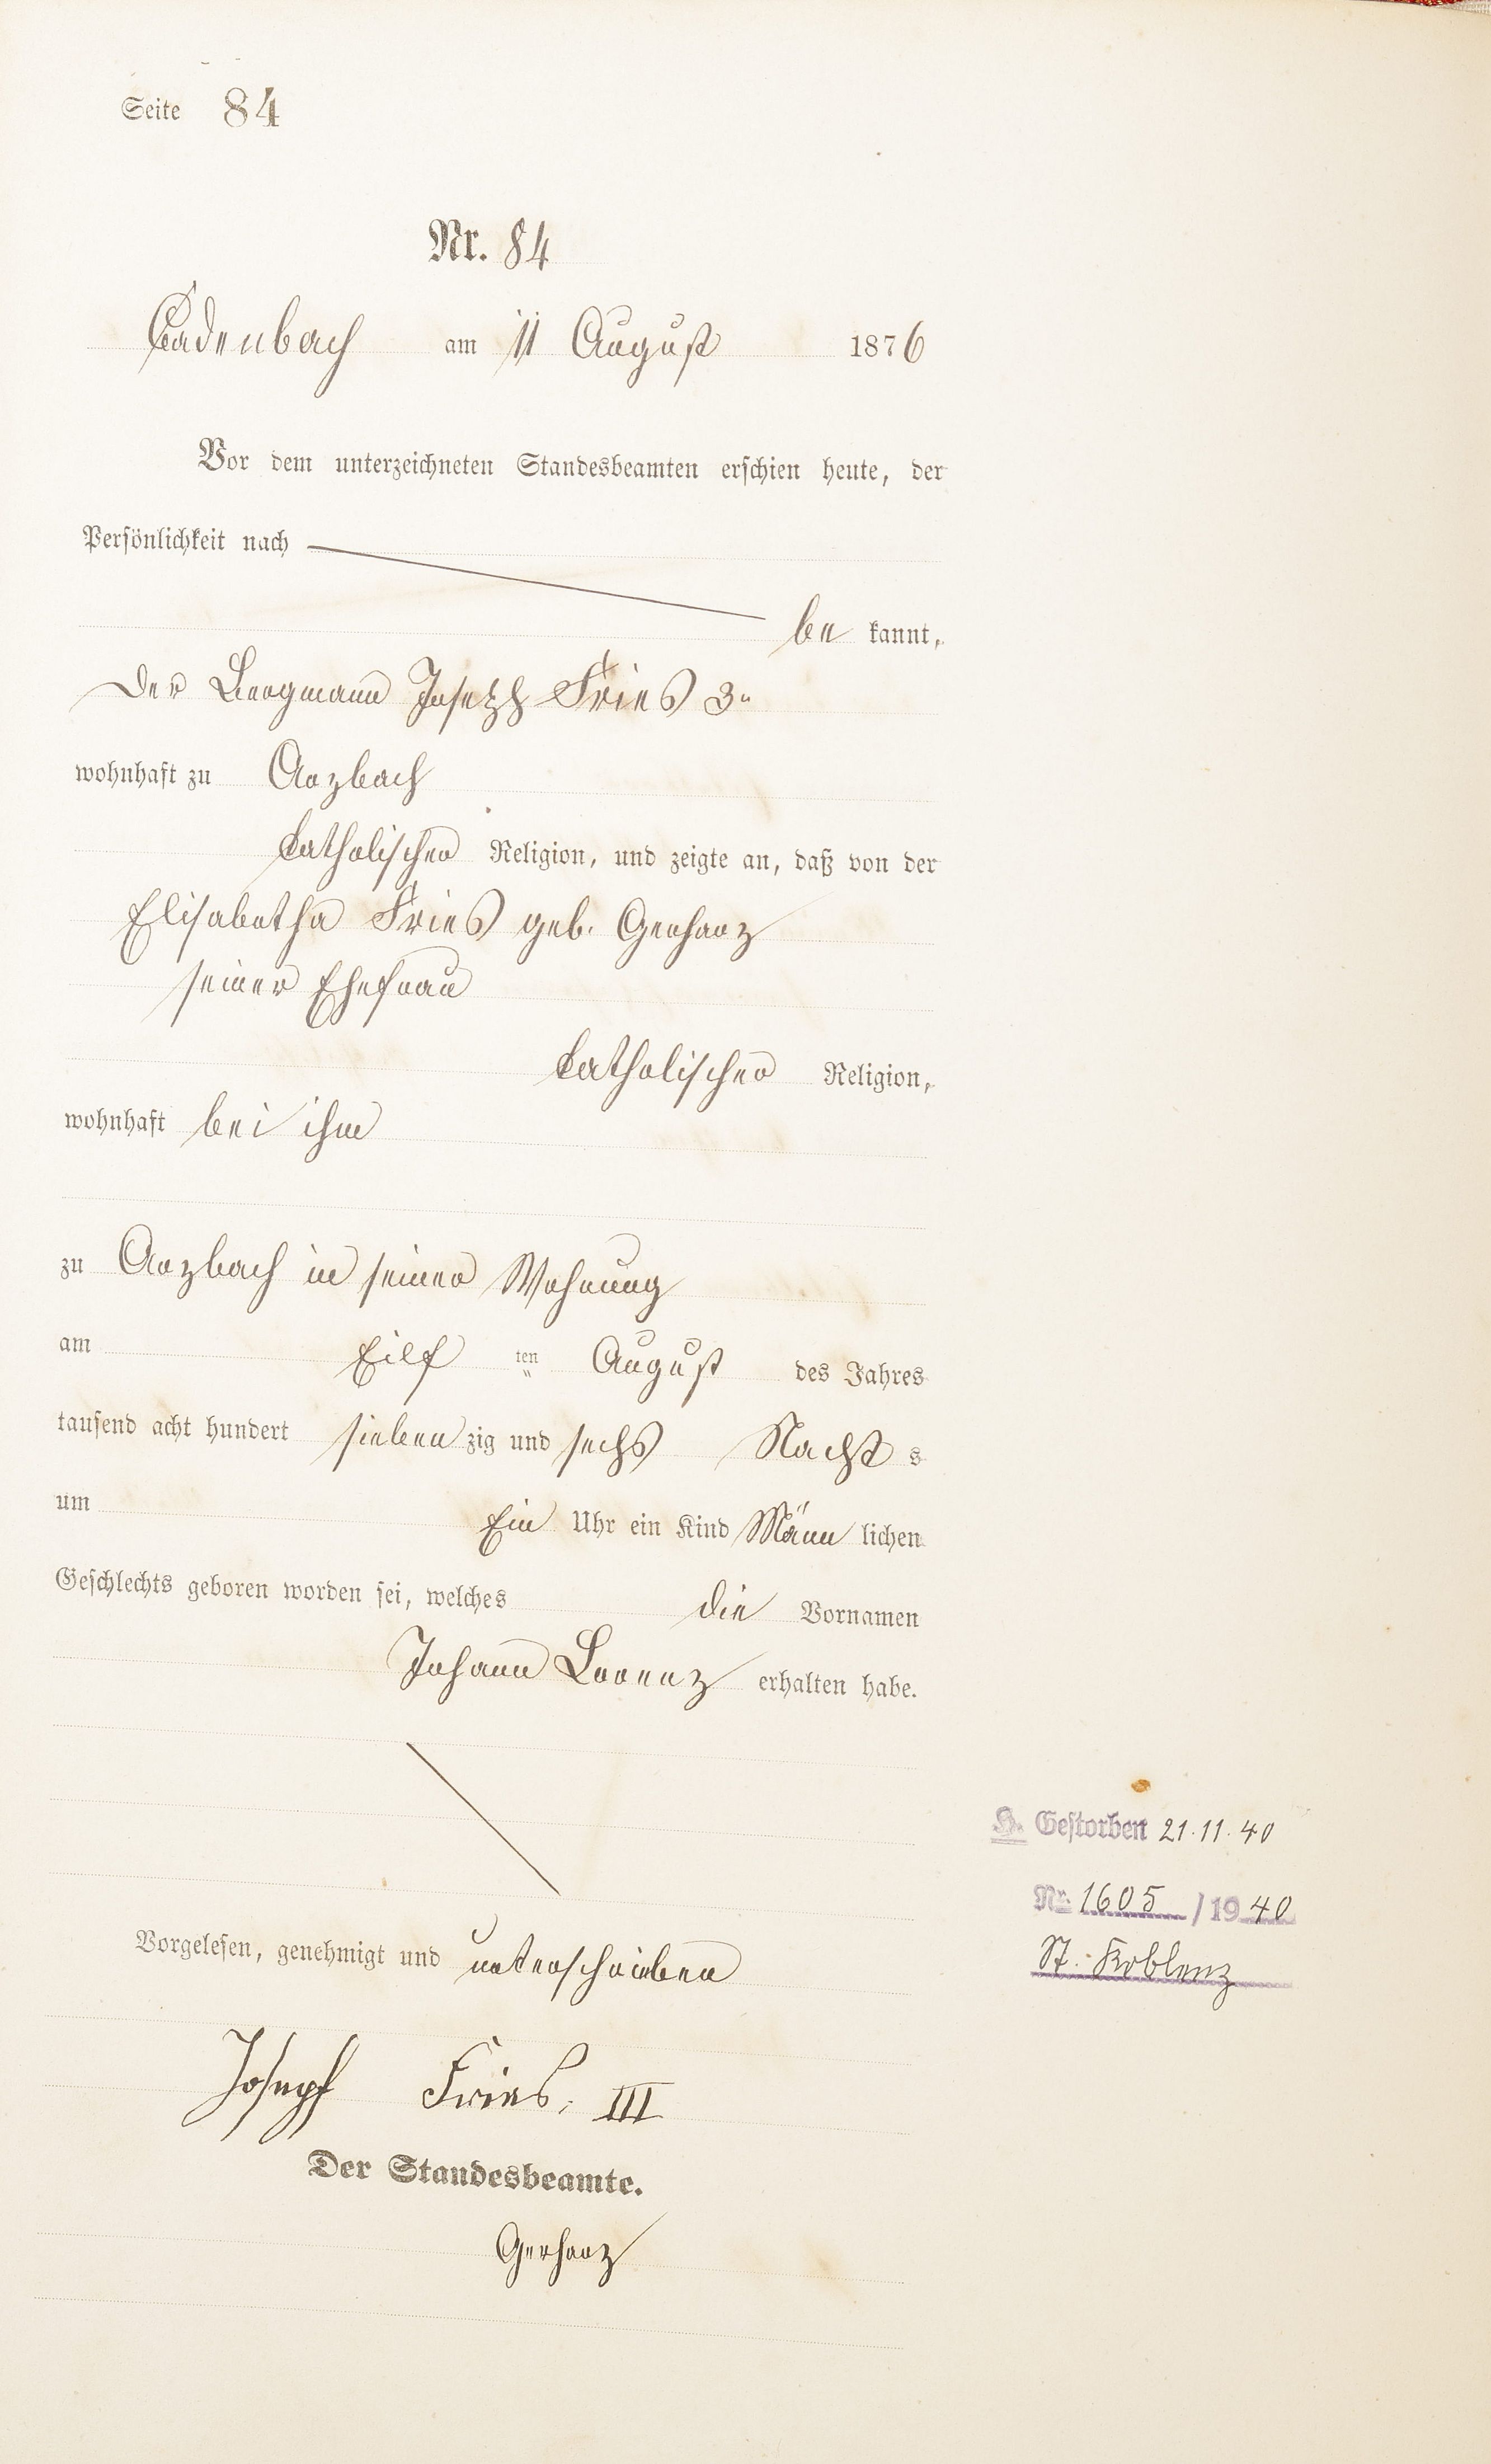 Seite 84
Nr. 84
Cadenbach am 11 August 1876
Vor dem unterzeichneten Standesbeamten erschien heute, der
Persönlichkeit nach
be kannt,
Der Bergmann Joseph Fries 3n
wohnhaft zu Arzbach
katholischer Religion, und zeigte an, daß von der
Elisabetha Fries geb. Gerharz
seiner Ehefrau
katholischer Religion,
wohnhaft bei ihm
zu Arzbach in seiner Wohnung
am Eilf ten August des Jahres
tausend acht hundert sieben zig und sechs Nacht s
um Ein Uhr ein Kind Männ lichen
Geschlechts geboren worden sei, welches die Vornamen
Johann Lorenz erhalten habe.
H. Gestorben 21.11.40
Nr. 1605 / 1940
St. Koblenz
Vorgelesen, genehmigt und unterschrieben
Joseph Fries, III
Der Standesbeamte.
Gerharz